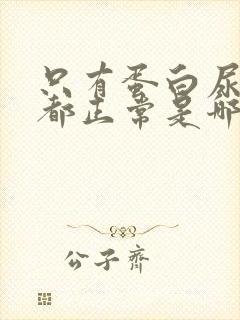 只有蛋白尿
都正常是哪
公子齐